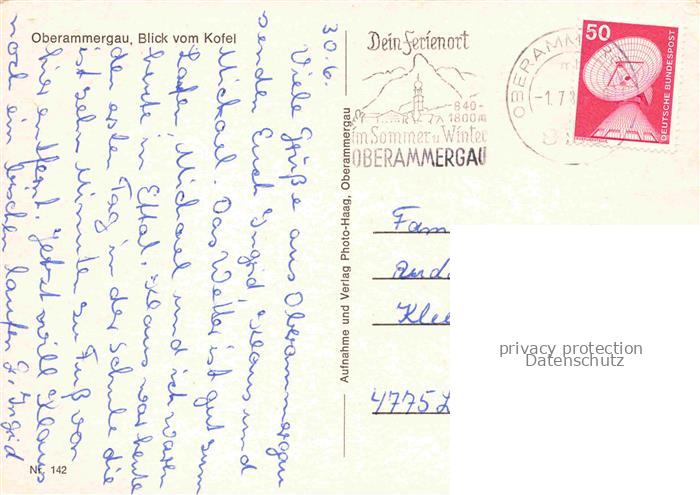 Oberammergau, Blick vom Kofel
30.6.
Viele Grüße aus Oberammergau
senden Euch Ingrid Klaus und
Michael. Das Wetter ist gut zum
Laufen, Michael und ich waren
heute in Ettal. Klaus war heute
den ersten Tag in der Schule die
ist zehn Minuten zu Fuß von
hier entfernt. Jetzt will Klaus
noch ein bischen laufen. Ingrid
Nr. 142
Aufnahme und Verlag Photo-Haag, Oberammergau
Dein Ferienort
840-
1800m
im Sommer u. Winter
OBERAMMERGAU
OBERAMM
-1.7.8
50
DEUTSCHE BUNDESPOST
Fam
Rud
Klee
4775 L
privacy protection
Datenschutz